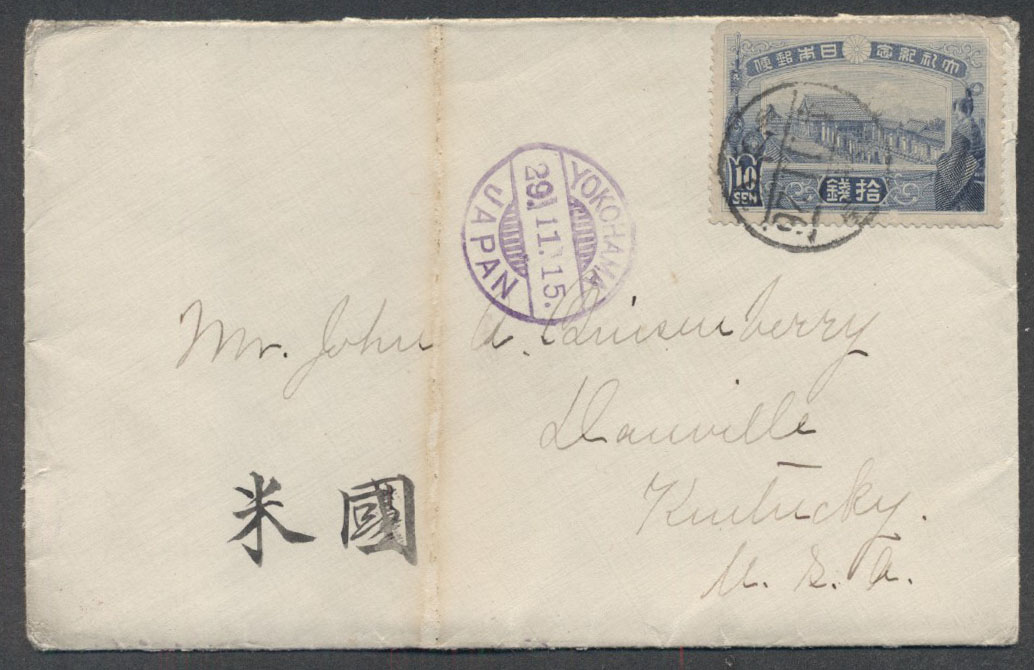 便郵本日 念紀禮大
10 SEN
錢拾
YOKOHAMA
29.11.15.
JAPAN
Mr. John A. Quisenberry
Danville
Kentucky.
U. S. A.
米國